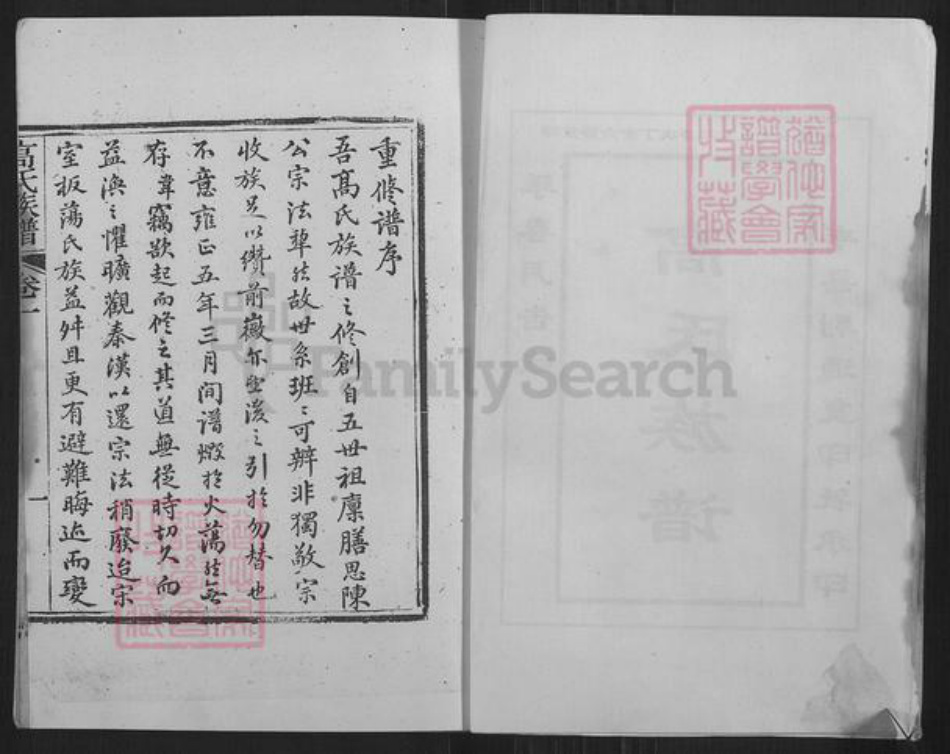 重修譜序
吾高氏族譜之修創自五世祖廩膳思陳
公宗法犂然故世系班〻可辨非獨敬宗
收族足以纘前徽亦望後之引於勿替也
不意雍正五年三月間譜燬於火蕩然無
存韋竊欲起而修之其道無從時切久而
益渙之懼曠觀秦漢以還宗法稍廢迨宋
室板蕩氏族益舛且更有避難晦迹而變
高氏族譜
卷一
一
FamilySearch
譜學會
收藏
高氏族譜